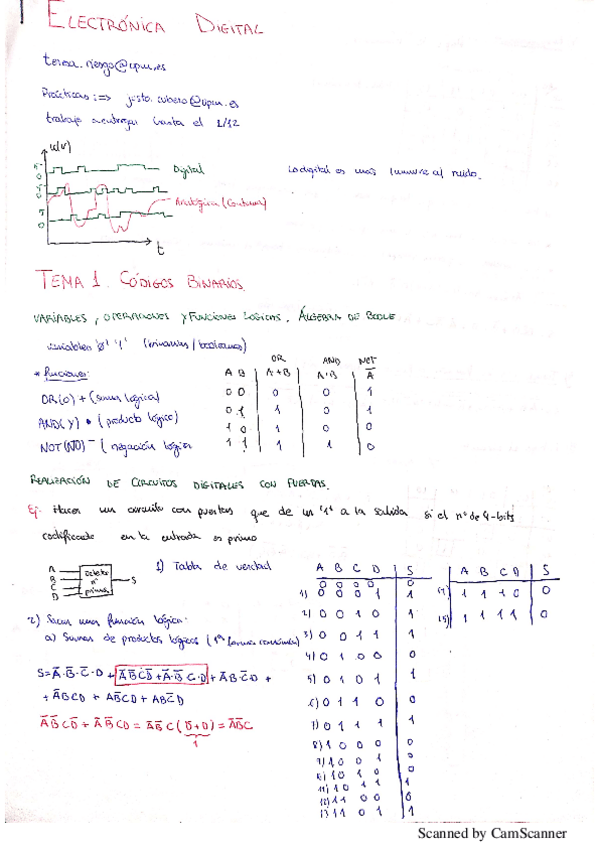 ELECTRÓNICA DIGITAL
teresa.riesgo@upm.es
Prácticas ==> justo.rubero@upm.es
trabajo a entregar hasta el 1/12
u(V)
Digital
Analógica (Continua)
t
Lo digital es mas inmune al ruido.
TEMA 1. CÓDIGOS BINARIOS.
VARIABLES, OPERACIONES Y FUNCIONES LÓGICAS. ÁLGEBRA DE BOOLE
variables '0' '1' (binarias / booleanas)
* Funciones:
OR(O) + (suma lógica)
AND(Y) • (producto lógico)
NOT(NO) ¯ (negación lógica
OR AND NOT
A B | A+B | A·B | A̅
0 0 | 0 | 0 | 1
0 1 | 1 | 0 | 1
1 0 | 1 | 0 | 0
1 1 | 1 | 1 | 0
REALIZACIÓN DE CIRCUITOS DIGITALES CON PUERTAS.
Ej: Hacer un circuito con puertas que de un '1' a la salida si el nº de 4-bits
codificado en la entrada es primo
A
B
C
D
detector
nº
primos
S
1) Tabla de verdad
2) Sacar una función lógica:
a) Sumas de productos lógicos (1ª forma canónica)
S=A̅·B̅·C̅·D + A̅B̅CD̅+A̅·B̅·C·D + A̅BC̅D +
+ A̅BCD + AB̅CD + ABC̅D
A̅B̅CD̅ + A̅B̅CD = A̅B̅C(D̅+D) = A̅B̅C
1
A B C D | S
0 0 0 0 | 0
1) 0 0 0 1 | 1
2) 0 0 1 0 | 1
3) 0 0 1 1 | 1
4) 0 1 0 0 | 0
5) 0 1 0 1 | 1
6) 0 1 1 0 | 0
7) 0 1 1 1 | 1
8) 1 0 0 0 | 0
9) 1 0 0 1 | 0
10) 1 0 1 0 | 0
11) 1 0 1 1 | 1
12) 1 1 0 0 | 0
13) 1 1 0 1 | 1
A B C D | S
14) 1 1 1 0 | 0
15) 1 1 1 1 | 0
Scanned by CamScanner